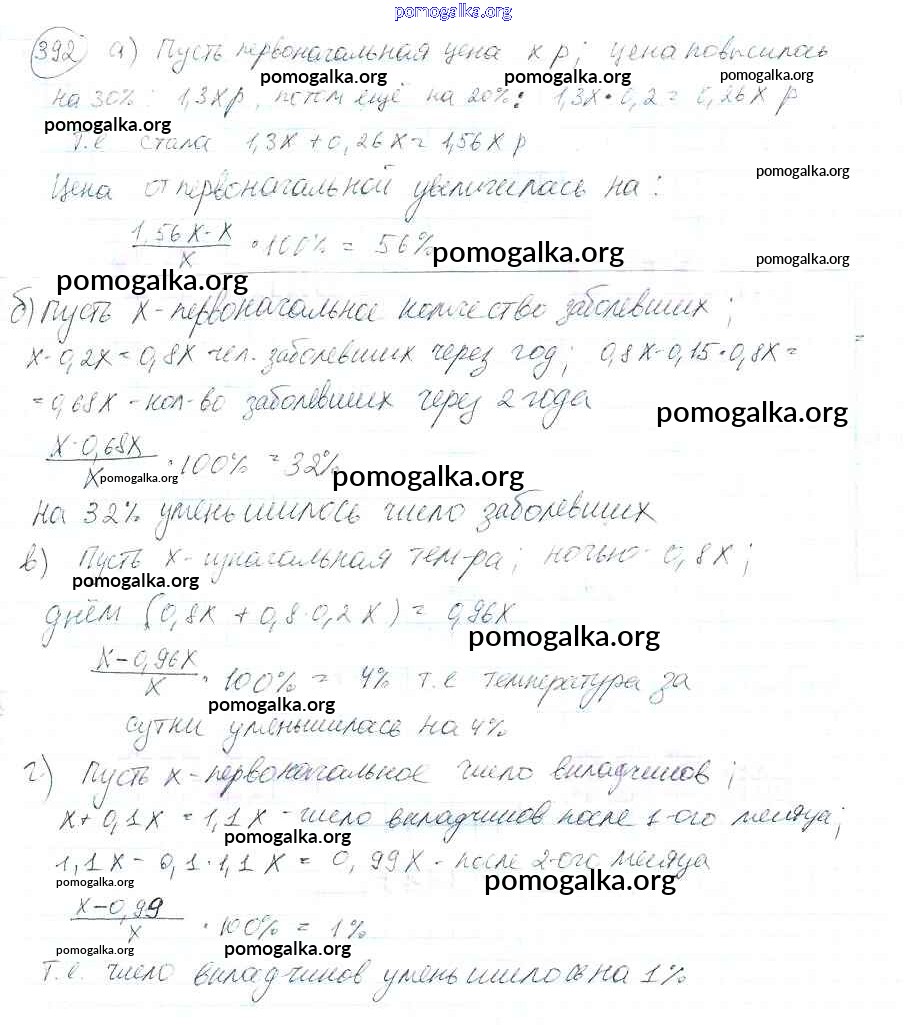 pomogalka.org
392 а) Пусть первоначальная цена x р; цена повысилась
pomogalka.org pomogalka.org pomogalka.org
на 30%: 1,3x р, потом ещё на 20%: 1,3x·0,2 = 0,26x р
pomogalka.org
т.е стала 1,3x + 0,26x = 1,56x р
pomogalka.org
Цена от первоначальной увеличилась на:
(1,56x-x)/x · 100% = 56%
pomogalka.org pomogalka.org
pomogalka.org
б) Пусть x - первоначальное количество заболевших;
x - 0,2x = 0,8x чел. заболевших через год; 0,8x-0,15·0,8x =
= 0,68x - кол-во заболевших через 2 года
pomogalka.org
(x-0,68x)/x · 100% = 32%
pomogalka.org pomogalka.org
на 32% уменьшилось число заболевших
в) Пусть x - изначальная тем-ра; ночью - 0,8x;
pomogalka.org
днём (0,8x + 0,8·0,2x) = 0,96x
pomogalka.org
(x-0,96x)/x · 100% = 4% т.е температура за
pomogalka.org
сутки уменьшилась на 4%
г) Пусть x - первоначальное число вкладчиков;
x + 0,1x = 1,1x - число вкладчиков после 1-ого месяца;
pomogalka.org
1,1x - 0,1·1,1x = 0,99x - после 2-ого месяца
pomogalka.org pomogalka.org
(x-0,99)/x · 100% = 1%
pomogalka.org pomogalka.org
Т.е. число вкладчиков уменьшилось на 1%